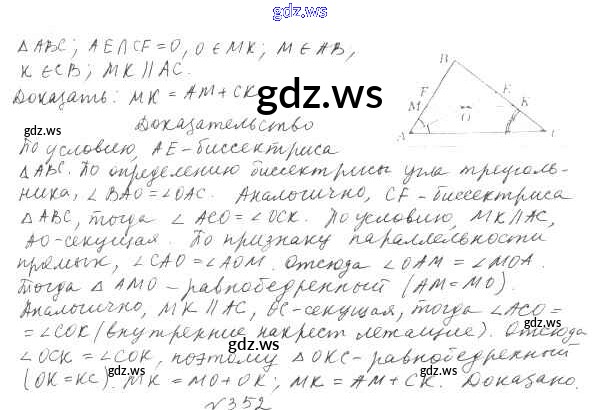 gdz.ws
△ABC; AE∩CF=O, O∈MK; M∈AB,
K∈CB; MK∥AC.
Доказать: MK=AM+CK
gdz.ws
B
F
E
M
K
O
A
C
Доказательство
gdz.ws
По условию, AE-биссектриса
gdz.ws
△ABC. По определению биссектрисы угла треуголь-
ника, ∠BAO=∠OAC. Аналогично, CF-биссектриса
△ABC, тогда ∠ACO=∠OCK. По условию, MK∥AC,
AO-секущая. По признаку параллельности
прямых, ∠CAO=∠AOM. Отсюда ∠OAM=∠MOA.
gdz.ws
Тогда △AMO-равнобедренный (AM=MO).
Аналогично, MK∥AC, OC-секущая, тогда ∠ACO=
=∠COK (внутренние накрест лежащие). Отсюда
gdz.ws
∠OCK=∠COK, поэтому △OKC-равнобедренный
gdz.ws
(OK=KC). MK=MO+OK; MK=AM+CK. Доказано.
№352
gdz.ws